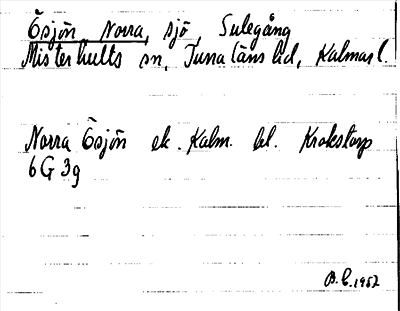 Ösjön, Norra, sjö, Sulegång
Misterhults sn, Tuna läns hd, Kalmar l.
Norra Ösjön ek. Kalm. bl. Krokstorp
6G 3g
1952